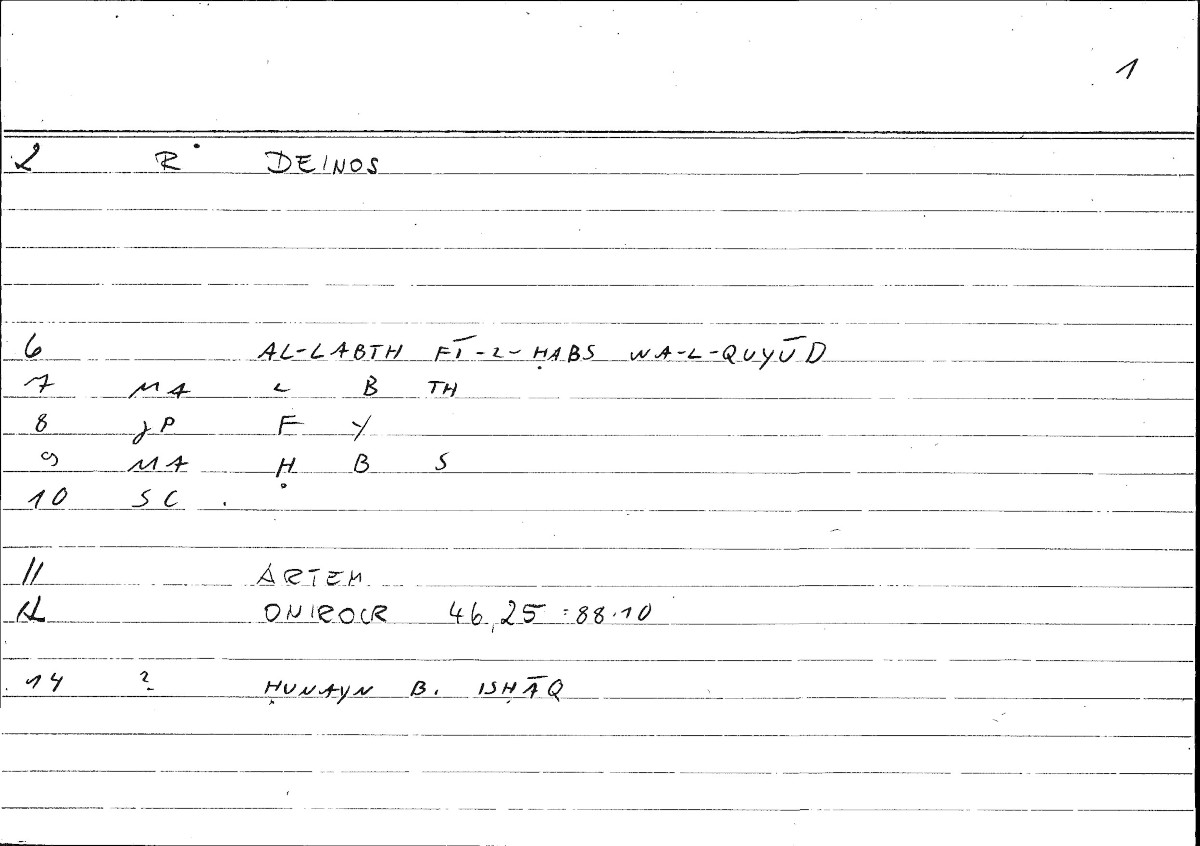 1
2 R° DEINOS
6 AL-LABTH FĪ-L-ḤABS WA-L-QUYŪD
7 MA L B TH
8 JP F Y
9 MA Ḥ B S
10 SC .
11 ARTEM
12 ONIROCR 46,25 : 88.10
14 ? ḤUNAYN B. ISḤĀQ